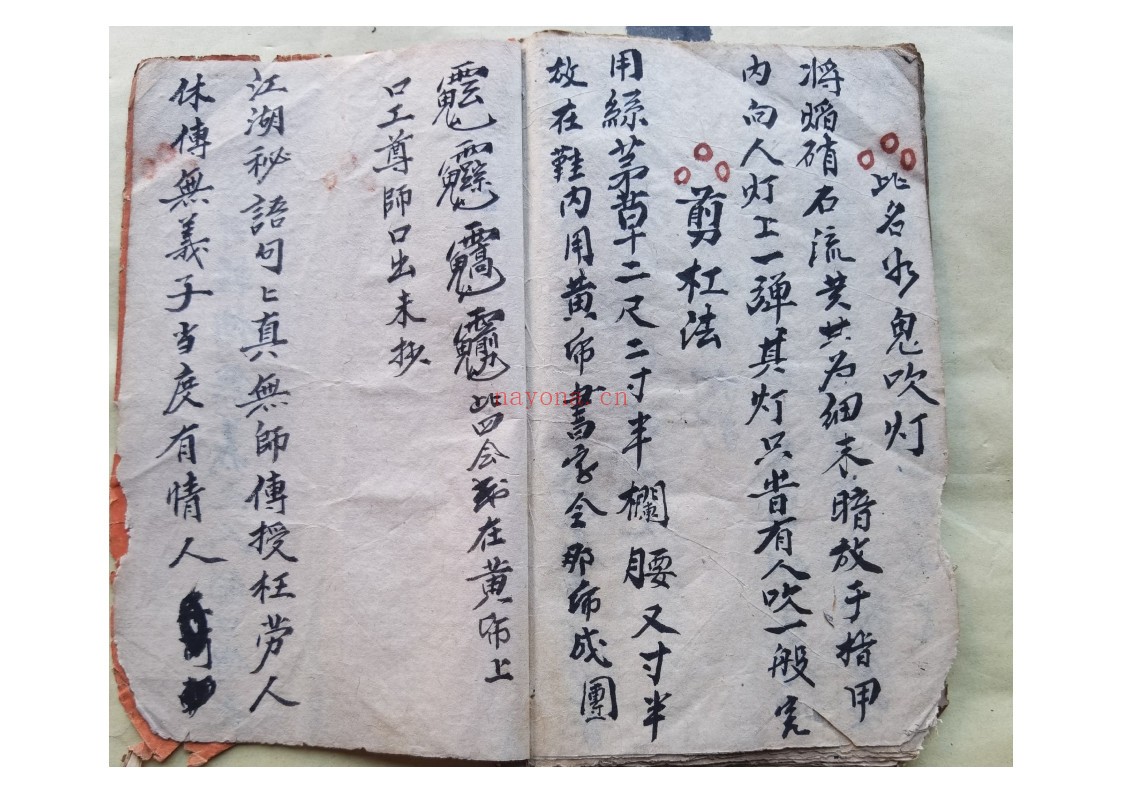 此名水鬼吹灯
将焰硝石流黄共为细末暗放于指甲
内向人灯上一弹其灯只昔有人吹一般完
剪杠法
用絲茅昔十二尺二寸半欄腰又寸半
放在鞋内用黄布書字全那布成團
此四会在黄布上
口工尊師口出未抄
江湖秘語句〻真無師傳授枉劳人
休傳無義子当度有情人
nayona.cn